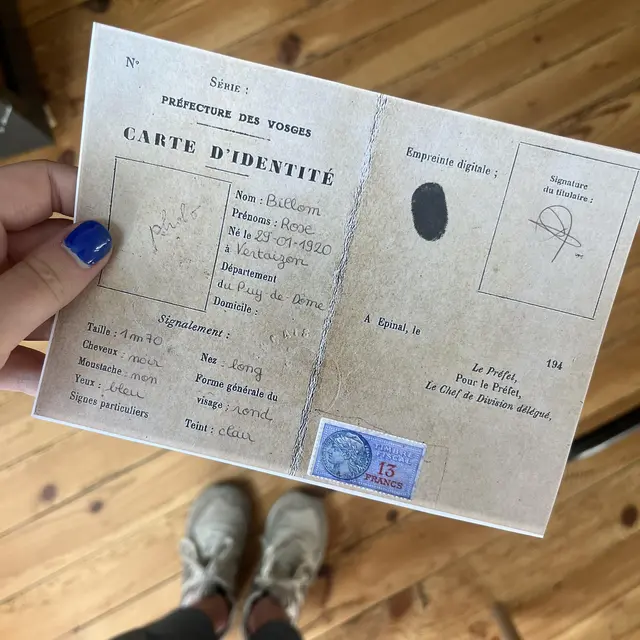 N°
SÉRIE :
PRÉFECTURE DES VOSGES
CARTE D'IDENTITÉ
Photo
Nom : Billom
Prénoms : Rose
Né le 25-01-1920
à Vertaizon
Département
du Puy de Dôme
Domicile :
Signalement :
Taille : 1m70
Cheveux : noir
Moustache : non
Yeux : bleu
Signes particuliers
Nez : long
Forme générale du
visage : rond
Teint : clair
Empreinte digitale ;
Signature
du titulaire :
A Epinal, le 194
Le Préfet,
Pour le Préfet,
Le Chef de Division délégué,
13
FRANCS